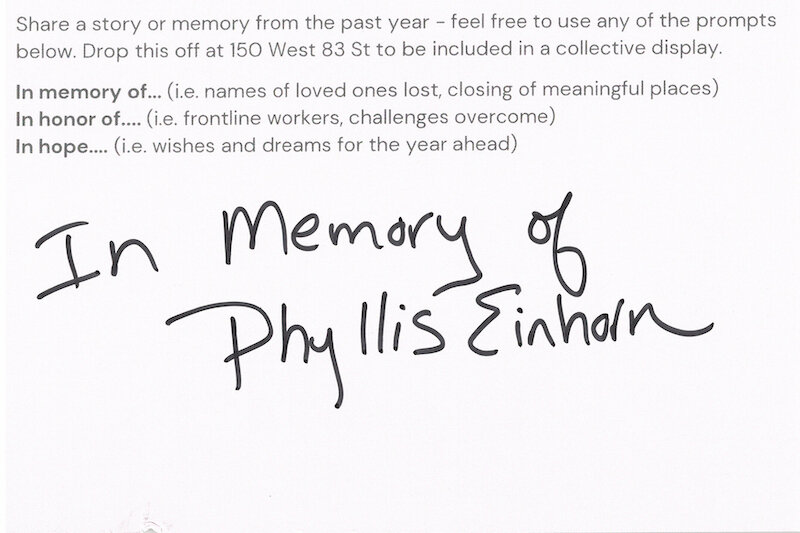 Share a story or memory from the past year - feel free to use any of the prompts
below. Drop this off at 150 West 83 St to be included in a collective display.
In memory of... (i.e. names of loved ones lost, closing of meaningful places)
In honor of.... (i.e. frontline workers, challenges overcome)
In hope.... (i.e. wishes and dreams for the year ahead)
In Memory of
Phyllis Einhorn